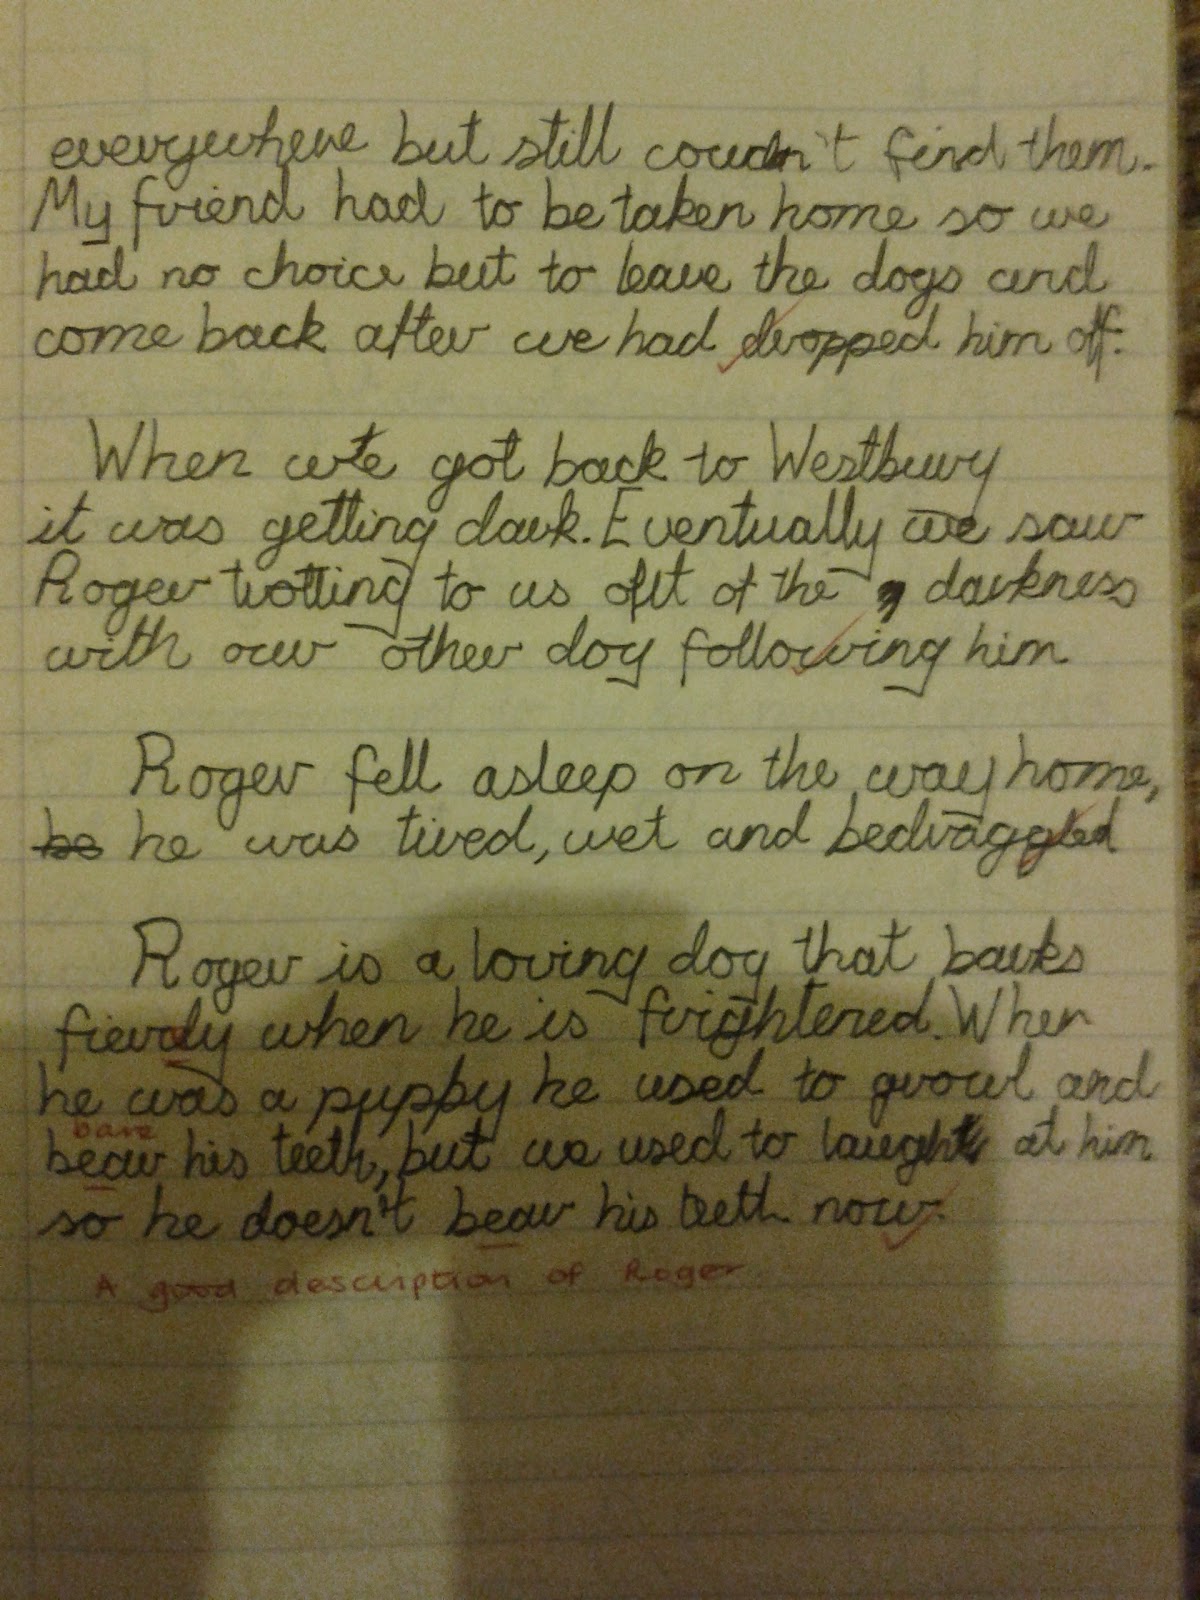 everywhere but still couldn't find them.
My friend had to be taken home so we
had no choice but to leave the dogs and
come back after we had dropped him off.
When we got back to Westbury
it was getting dark. Eventually we saw
Roger trotting to us out of the darkness
with our other dog following him
Roger fell asleep on the way home,
he was tired, wet and bedraggled
Roger is a loving dog that barks
fiercly when he is frightened. When
he was a puppy he used to growl and
bare
bear his teeth, but we used to laugh at him
so he doesn't bear his teeth now.
A good description of Roger.